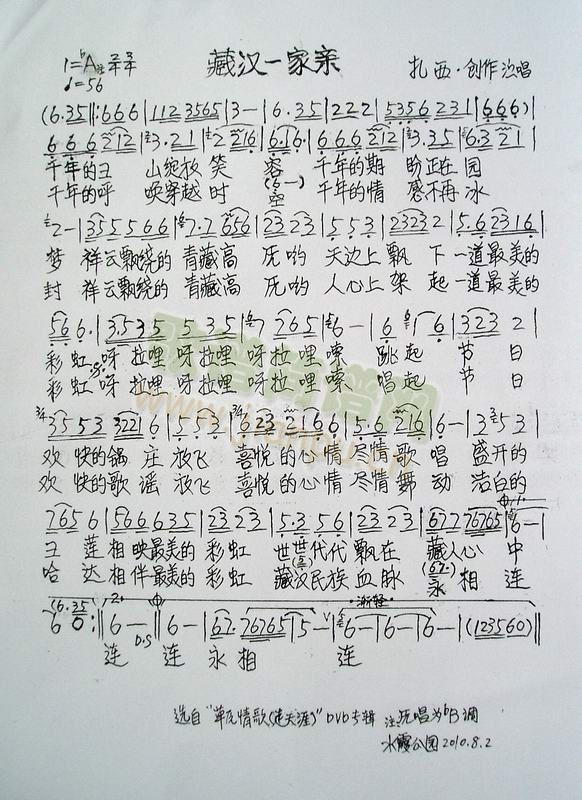 藏汉一家亲
1=ᵇA 2/4 3/4
♩=56
扎西·创作演唱
(6.35‖:666|112 3565|3-|6.35|222|5356 231|666)|
666 212|3.21|2 216|616|666 212|3.35|6.3 21|
千年的王 山绽放 笑 容 千年的期 盼正在 圆
千年的呼 唤穿越 时 空 千年的情 感不再 冰
(6-)
2-|355566|7.7 656|23 23|553|2323 2|5.6 2316|
梦 祥云飘绕的 青藏高 原哟 天边上 飘 下 一道最美的
封 祥云飘绕的 青藏高 原哟 人心上 架 起 一道最美的
56 6.|3.535 5 35|7 765|6-|6 6|323 2|
彩虹呀 拉哩 呀拉哩 呀拉哩 嗦 跳起 节 日
彩虹呀 拉哩 呀拉哩 呀拉哩 嗦 唱起 节 日
3/4 3553 322 16|5 3|3/4 623 2166|5.6 216|6-|3 353|
欢 快的锅 庄 放飞 喜悦的心情 尽情歌 唱 盛开的
欢 快的歌 谣 放飞 喜悦的心情 尽情舞 动 洁白的
765 6|566 635|23 23|5.3 56|23 23|677 76765|6-|
王 莲 相映最美的 彩虹 世世代代 飘在 藏人心 中
哈 达 相伴最美的 彩虹 藏汉民族 血脉 永相 连
(67.)
(6.35
6 0:‖6-|6-|67. 76765|5-|6-|6-|6-|(123560)‖
2. D.S 渐轻
连 连 永 相 连
选自"草原情歌(走天涯)"DVD专辑 注:原唱为ᵇB调
水霞公园2010.8.2
www.jianpu.cn